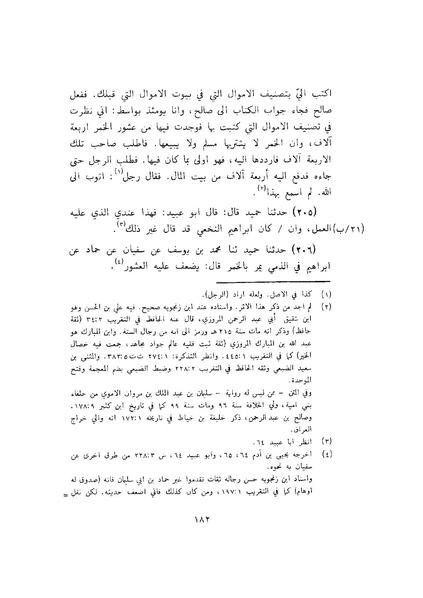 اكتب اليّ بتصنيف الاموال التي في بيوت الاموال التي قبلك. ففعل
صالح فجاء جواب الكتاب الى صالح، وانا يومئذ بواسط: اني نظرت
في تصنيف الاموال التي كتبت بها فوجدت فيها من عشور الخمر اربعة
آلاف، وان الخمر لا يشتريها مسلم ولا يبيعها. فاطلب صاحب تلك
الاربعة آلاف فارددها اليه، فهو اولى بما كان فيها. فطلب الرجل حتى
جاءه فدفع اليه أربعة آلاف من بيت المال. فقال رجل(١): اتوب الى
الله. لم اسمع بهذا(٢).
(٢٠٥) حدثنا حميد قال: قال ابو عبيد: فهذا عندي الذي عليه
(٢١/ب) العمل، وان / كان ابراهيم النخعي قد قال غير ذلك(٣).
(٢٠٦) حدثنا حميد ثنا محمد بن يوسف عن سفيان عن حماد عن
ابراهيم في الذمي يمر بالخمر قال: يضعف عليه العشور(٤).
(١) كذا في الاصل. ولعله اراد (الرجل).
(٢) لم اجد من ذكر هذا الاثر. واسناده عند ابن زنجويه صحيح. فيه علي بن الحسن وهو
ابن شقيق أبي عبد الرحمن المروزي، قال عنه الحافظ في التقريب ٣٤:٢ (ثقة
حافظ) وذكر انه مات سنة ٢١٥ هـ ورمز الى انه من رجال الستة. وابن المبارك هو
عبد الله بن المبارك المروزي (ثقة ثبت فقيه عالم جواد مجاهد، جمعت فيه خصال
الخير) كما في التقريب ٤٤٥:١. وانظر التذكرة: ٢٧٤:١ ت ت ٣٨٢:٥. والمثنى بن
سعيد الضبعي وثقه الحافظ في التقريب ٢٢٨:٢ وضبط الضبعي بضم المعجمة وفتح
الموحدة.
وفي المتن - ممن ليس له رواية - سليمان بن عبد الملك بن مروان الاموي من خلفاء
بني امية، ولي الخلافة سنة ٩٦ ومات سنة ٩٩ كما في تاريخ ابن كثير ١٧٨:٩.
وصالح بن عبد الرحمن، ذكر خليفة بن خياط في تاريخه ١٧٢:١ انه والي خراج
العراق.
(٣) انظر ابا عبيد ٦٤.
(٤) اخرجه يحيى بن آدم ٦٤، ٦٥، وابو عبيد ٦٤، س ٢٢٨:٣ من طرق اخرى عن
سفيان به نحوه.
واسناد ابن زنجويه حسن رجاله ثقات تقدموا غير حماد بن ابي سليمان فانه (صدوق له
اوهام) كما في التقريب ١٩٧:١، ومن كان كذلك فاني اضعف حديثه. لكن نقل =
١٨٢